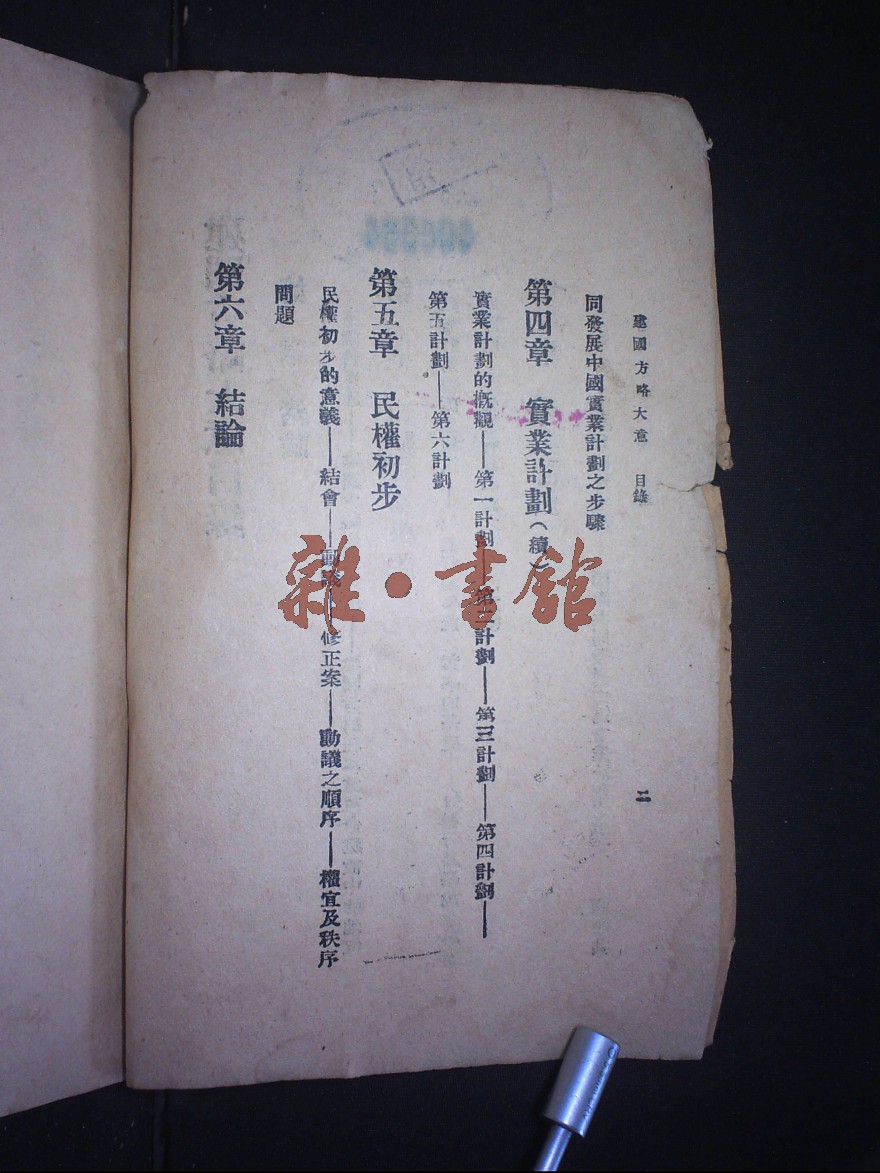 建國方略大意　目錄　二
同發展中國實業計劃之步驟
第四章　實業計劃（續）
實業計劃的概觀——第一計劃——第二計劃——第三計劃——第四計劃——
第五計劃——第六計劃
第五章　民權初步
民權初步的意義——結會——動議——修正案——動議之順序——權宜及秩序
問題
第六章　結論
雜·書館